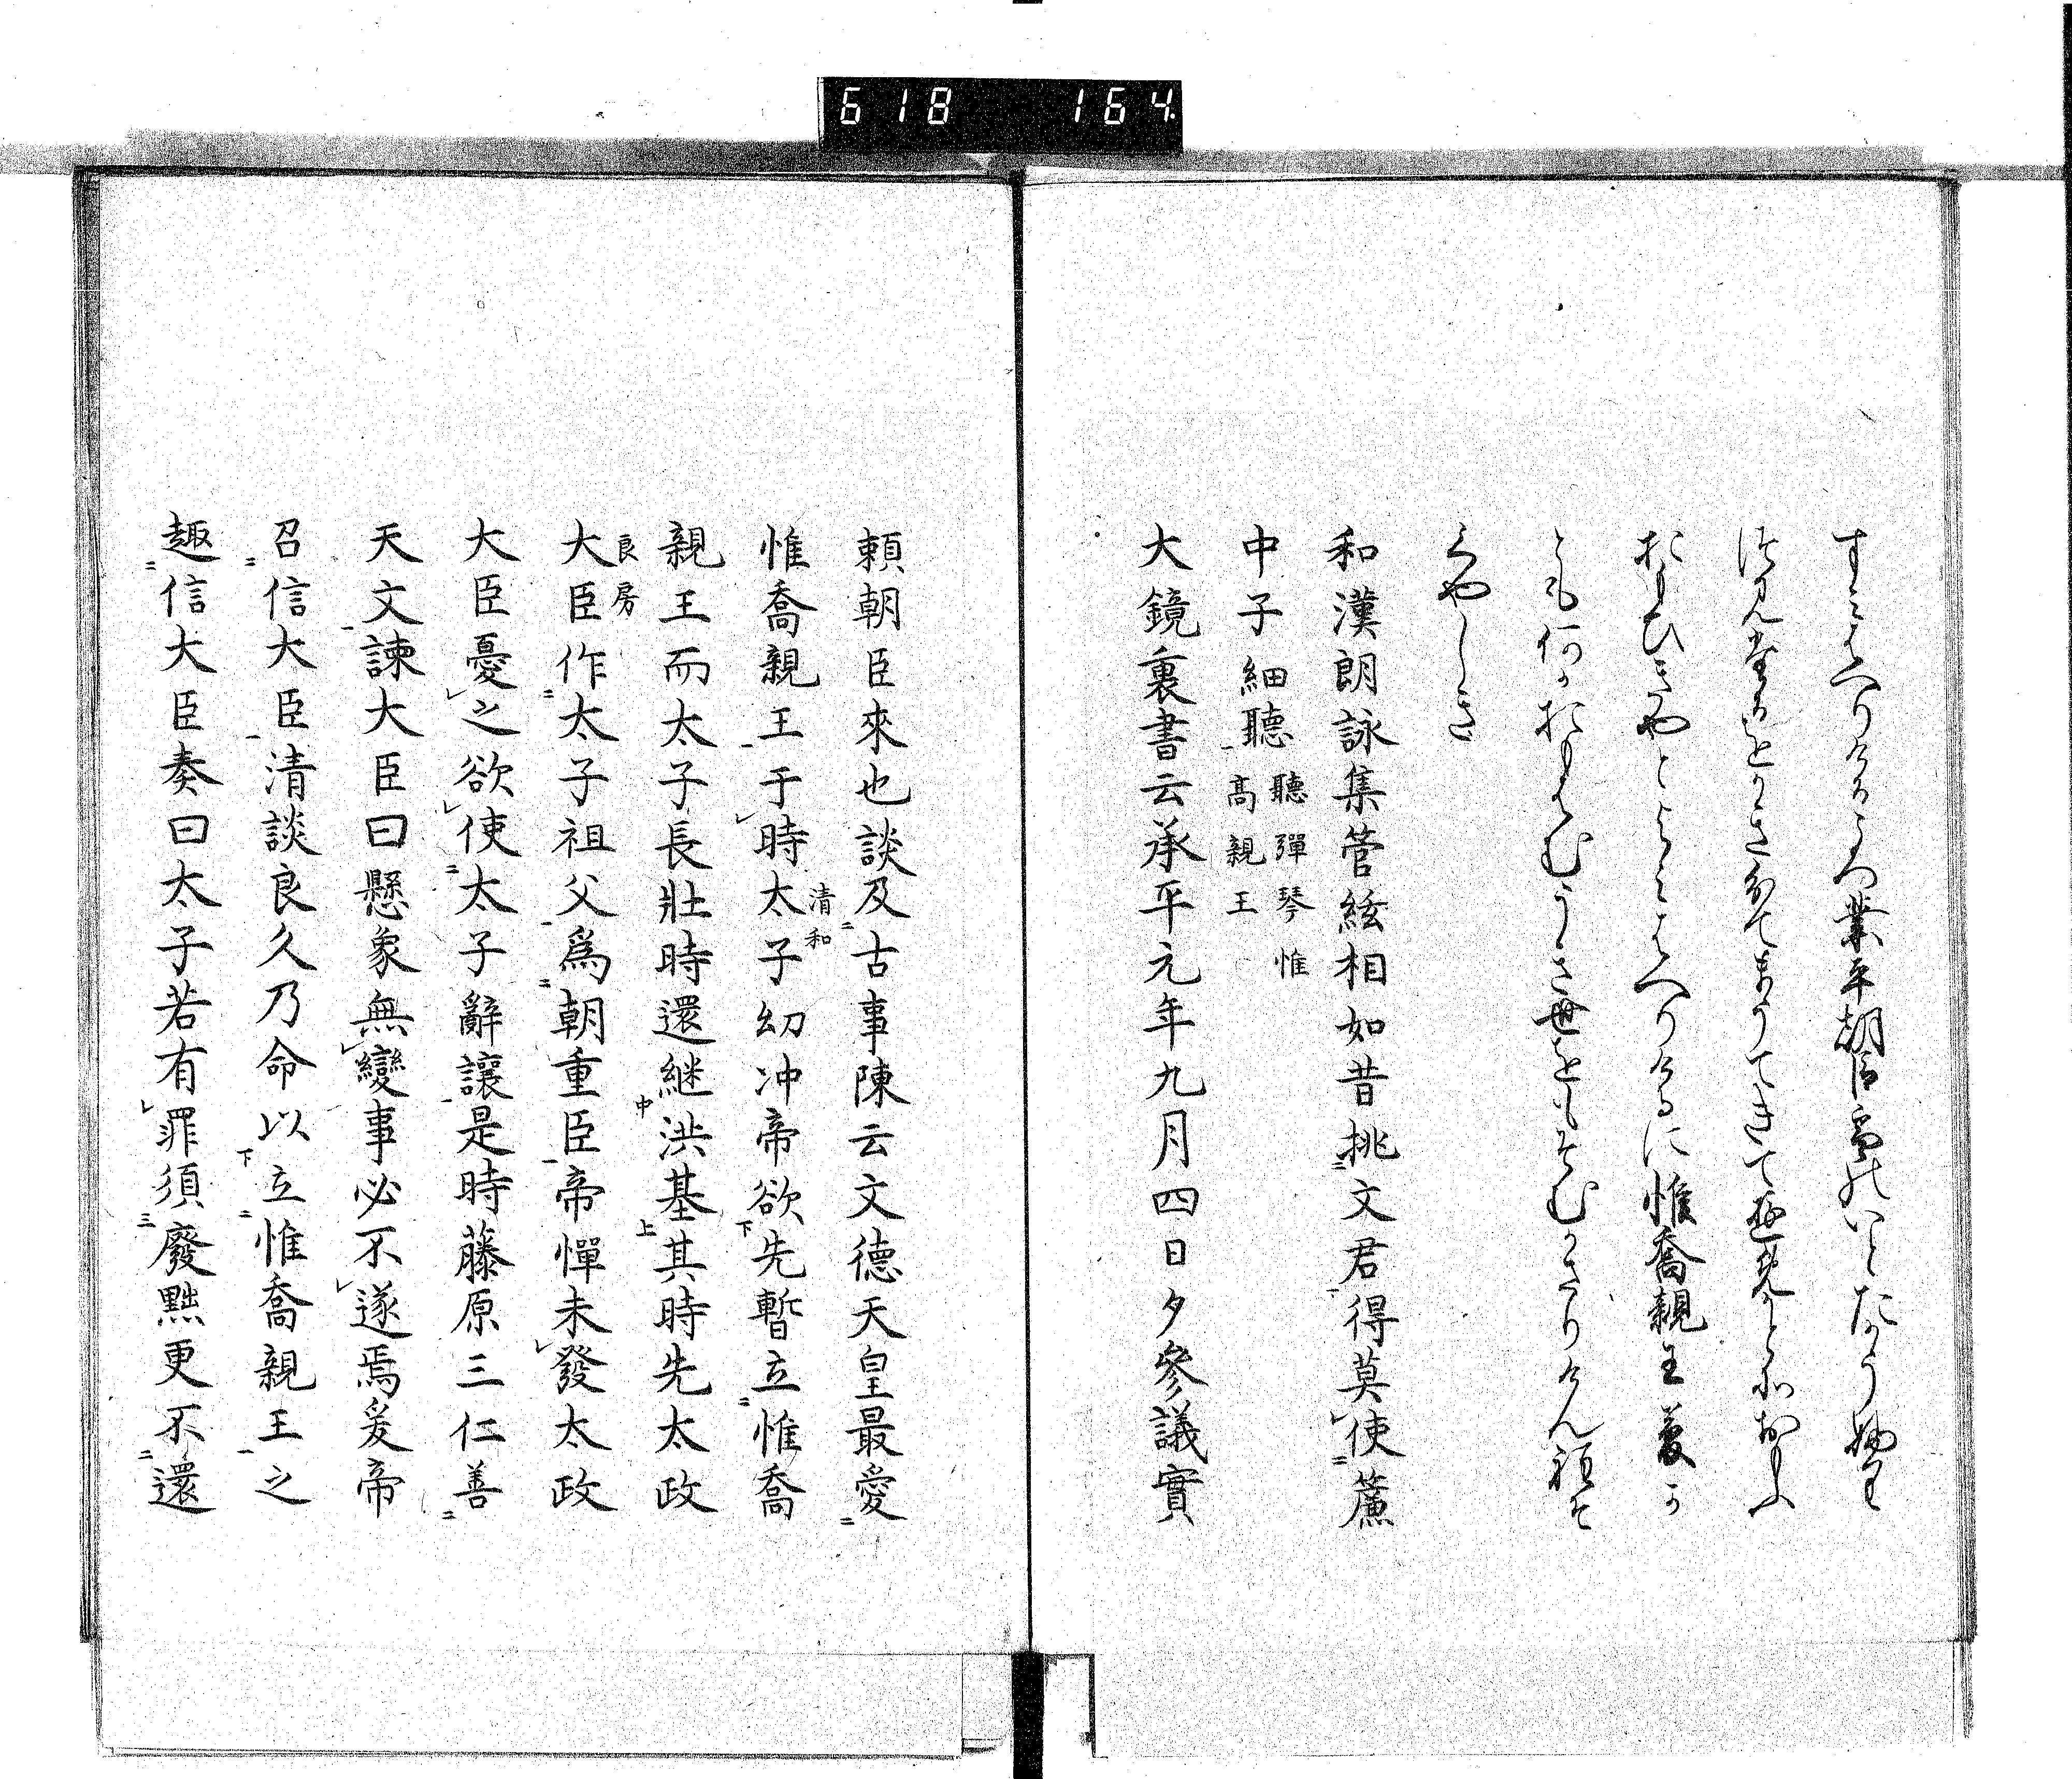 618 164
すみはへりけるころ業平朝臣雪のいとたかうふり
つみたるをかきわけてまうてきて夢かとそおもふ
おもひきやとよみはへりけるに惟喬親王夢か
とも何かおもはむうき世をもそむかさりけん程そ
くやしき
和漢朗詠集管絃相如昔挑文君得莫使簾
中子細聽 聽彈琴 惟高親王
大鏡裏書云承平元年九月四日夕參議實
頼朝臣來也談及古事陳云文德天皇最愛
惟喬親王于時太子清和幼冲帝欲先暫立惟喬
親王而太子長壯時還継洪基其時先太政
大臣良房作太子祖父爲朝重臣帝憚未發太政
大臣憂之欲使太子辭讓是時藤原三仁善
天文諫大臣曰懸象無變事必不遂焉爰帝
召信大臣清談良久乃命以立惟喬親王之
趣信大臣奏曰太子若有罪須廢黜更不還